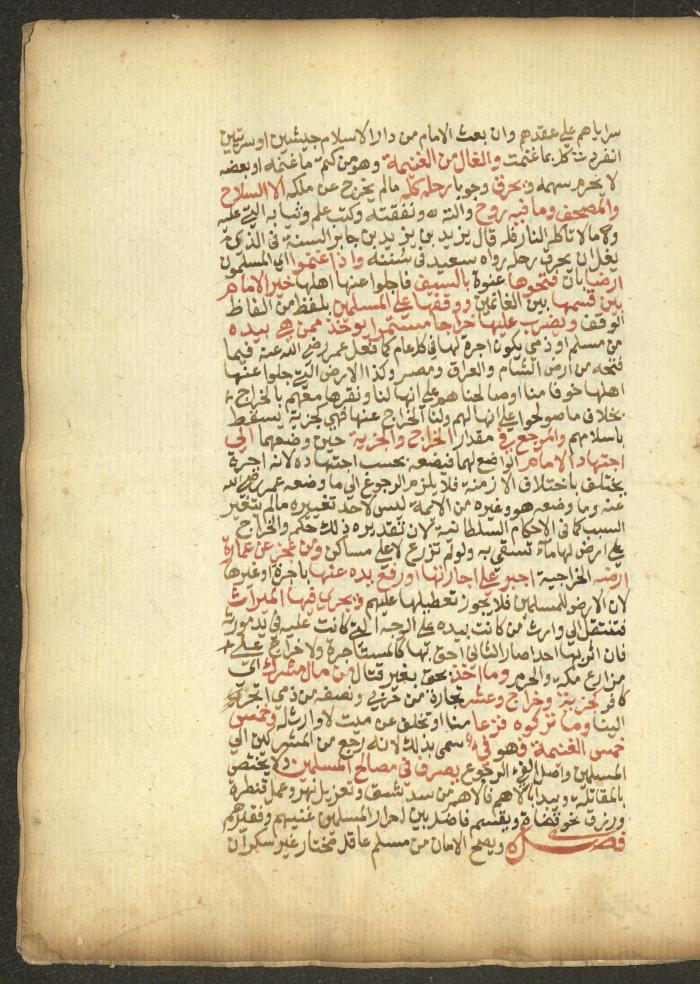 سراياهم على عقدهم وان بعث الامام من دار الاسلام جيشين او سريتين
انفردت كل بما غنمت والغال من الغنيمة وهو من كتم ما غنمه او بعضه
لا يحرم سهمه ويحرق وجوبا رحله كله مالم يخرج عن ملكه الا السلاح
والمصحف وما فيه روح والته ونفقته وكتب علم وثيابه التي عليه
وما لا تاكله النار فله قال يزيد بن يزيد بن جابر السنة في الذي
يغل ان يحرق رحله رواه سعيد في سننه واذا غنموا اي المسلمون
ارضا بان فتحوها عنوة بالسيف فاجلوا عنها اهلها خير الامام
بين قسمها بين الغانمين ووقفها على المسلمين بلفظ من الفاظ
الوقف ويضرب عليها خراجا مستمرا يوخذ ممن هي بيده
من مسلم او ذمي يكون اجرة لها في كل عام كما فعل عمر رضي الله عنه فيما
فتحه من ارض الشام والعراق ومصر وكذا الارض التي جلوا عنها
اهلها خوفا منا او صالحناهم على انها لنا ونقرها معهم بالخراج
بخلاف ما صولحوا على انها لهم ولنا الخراج عنها فهي كجزية يسقط
باسلامهم والمرجع في مقدار الخراج والجزية حين وضعهما الى
اجتهاد الامام الواضع لهما فيضعه بحسب اجتهاده لانه اجرة
يختلف باختلاف الازمنة فلا يلزم الرجوع الى ما وضعه عمر رضي الله
عنه وما وضعه هو وغيره من الائمة ليس لاحد تغييره مالم يتغير
السبب كما في الاحكام السلطانية لان تقديره ذلك حكم والخراج
على ارض لها ماء تسقى به ولو لم تزرع لا على مساكن ومن عجز عن عمارة
ارضه الخراجية اجبر على اجارتها او رفع يده عنها باجرة او غيرها
لان الارض للمسلمين فلا يجوز تعطيلها عليهم ويجري فيها الميراث
فتنتقل الى وارث من كانت بيده على الوجه الذي كانت عليه في يد مورثه
فان اثر بها احدا صار الثاني احق بها كالمستاجرة ولا خراج على
مزارع مكة والحرم وما اخذ بحق بغير قتال من مال مشرك اي
كافر كجزية وخراج وعشر تجارة من حربي ونصفه من ذمي اتجر
الينا وما تركوه فزعا منا او تخلف عن ميت لا وارث له وخمس
خمس الغنيمة فهو فيء سمي بذلك لانه رجع من المشركين الى
المسلمين واصل الفيء الرجوع يصرف في مصالح المسلمين ولا يختص
بالمقاتلة ويبدا بالاهم فالاهم من سد بثق وتعزيل نهر وعمل قنطرة
ورزق نحو قضاة ويقسم فاضل بين احرار المسلمين غنيهم وفقيرهم
فصل ويصح الامان من مسلم عاقل مختار غير سكران